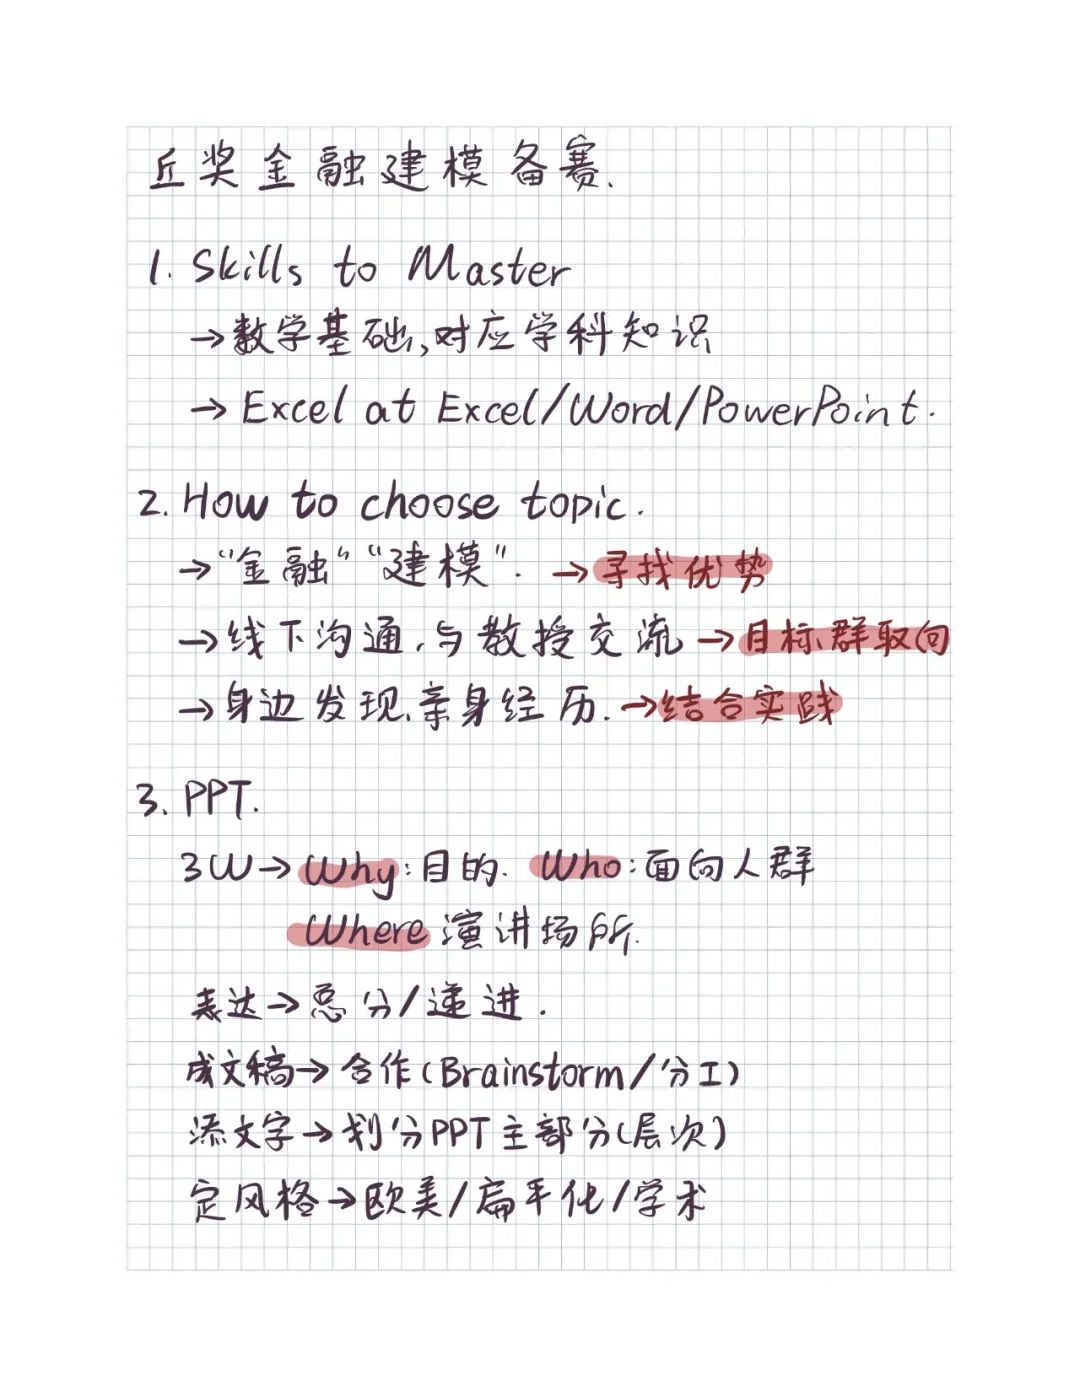 丘奖金融建模备赛.
1. Skills to Master
→数学基础,对应学科知识
→ Excel at Excel/Word/PowerPoint.
2. How to choose topic.
→“金融”“建模”. →寻找优势
→线下沟通,与教授交流→目标群取向
→身边发现、亲身经历.→结合实践
3. PPT.
3W→Why:目的. Who:面向人群
Where 演讲场所.
表达→总分/递进.
成文稿→合作(Brainstorm/分工)
添文字→划分PPT主部分(层次)
定风格→欧美/扁平化/学术